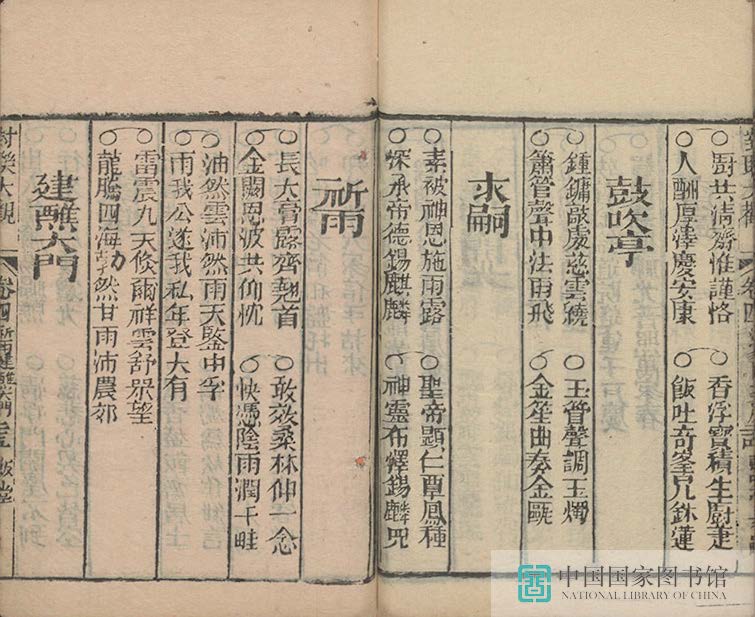 廚共清齋惟謹恪 香浮寶積生厨妻
人酬厚澤慶安康 飯吐奇峯見鉢蓮
鼓吹亭
鍾鏞鼓處慈雲繞 玉管聲調玉燭
簫管聲中法雨飛 金笙曲奏金甌
求嗣
素被神恩施雨露 聖帝顯仁覃鳳種
深承帝德錫麒麟 神靈布懌錫麟兕
祈雨
長大膏露齊翹首 敢效桑林伸一念
金闕恩波共仰忱 快憑陰雨潤千畦
油然雲沛然雨天鑒中孚
雨我公遂我私年登大有
雷震九天倏爾祥雲舒眾望
龍騰四海勃然甘雨沛農郊
建醮大門
對類大觀 卷四 祈雨建醮大門
中国国家图书馆
NATIONAL LIBRARY OF CHINA